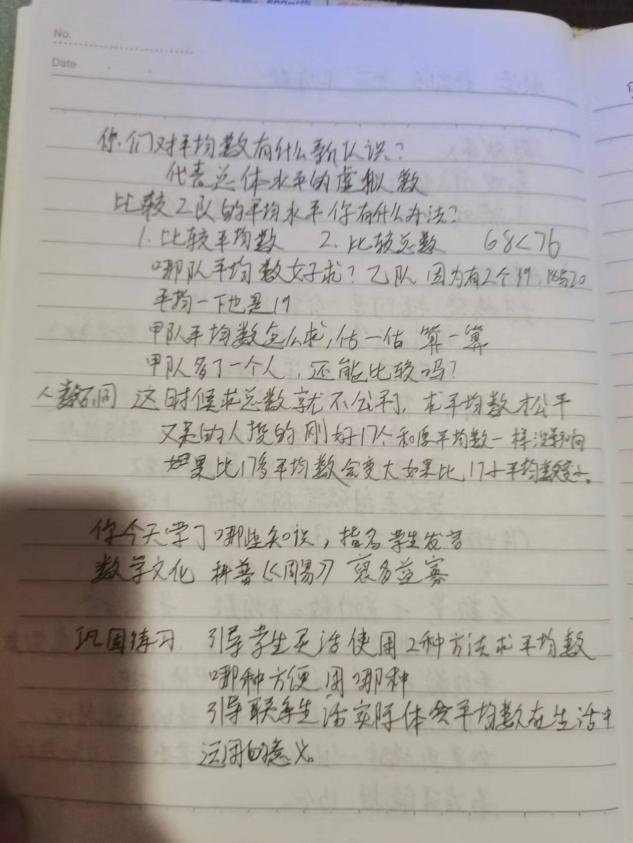 No.
Date
你们对平均数有什么新认识?
代表总体水平的虚拟数
比较2队的平均水平你有什么办法?
1. 比较平均数 2. 比较总数 68<76
哪队平均数好求? 乙队 因为有2个19, 18与20
平均一下也是19
甲队平均数怎么求, 估一估 算一算
甲队多了一个人, 还能比较吗?
人数不同 这时候求总数就不公平, 求平均数公平
又来的人投的刚好17个和原平均数一样没影响
如果比17多平均数会变大如果比17小平均数变小。
你今天学了哪些知识, 指名学生发言
数学文化 科普《周易》裒多益寡
巩固练习 引导学生灵活使用2种方法求平均数
哪种方便用哪种
引导联系生活实际体会平均数在生活中
运用的意义。